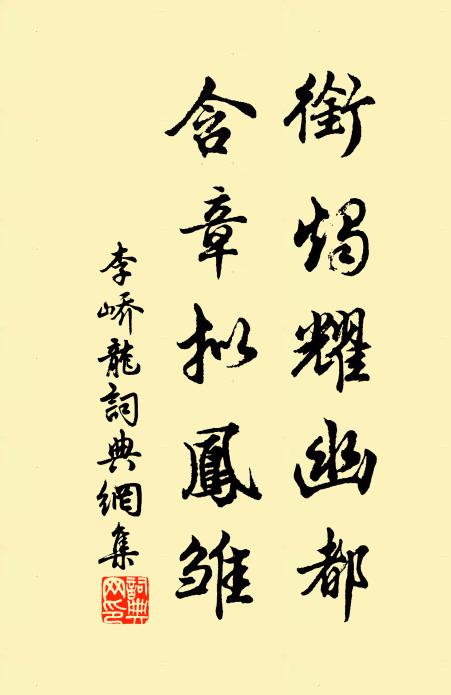 銜燭耀幽都
含章拟鳳雏
李嶠龍詞典網集
詞典网印